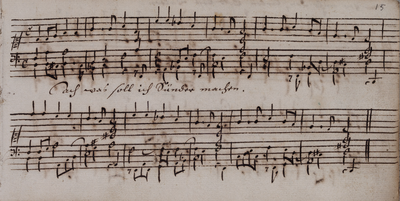 15
Ach was soll ich Sünder machen.